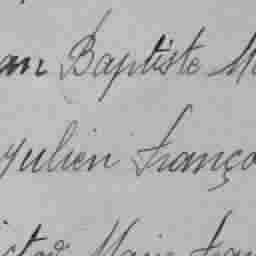 an Baptiste M
Julien Franço
ictor Marie Fran